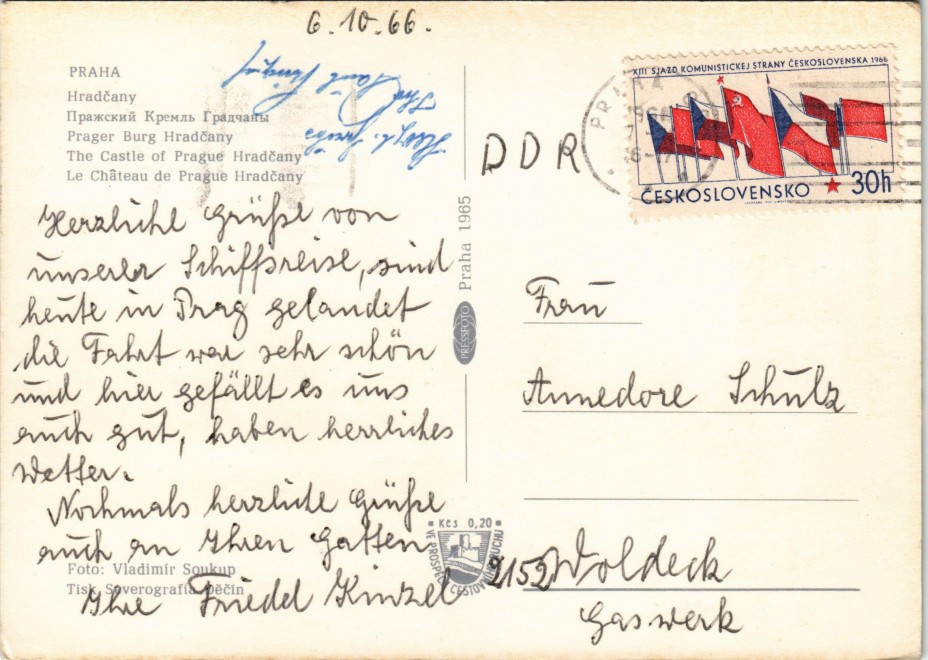 6.10.66.
PRAHA
Hradčany
Пражский Кремль Градчаны
Prager Burg Hradčany
The Castle of Prague Hradčany
Le Château de Prague Hradčany
Herzliche Grüße von
unserer Schiffsreise, sind
heute in Prag gelandet
die Fahrt war sehr schön
und hier gefällt es uns
auch gut, haben herrliches
Wetter.
Nochmals herzliche Grüße
auch an Ihren Gatten
Ihre Friedel Kinzel
Foto: Vladimír Soukup
Tisk Severografia Děčín
Herzl. Grüße
Ihr
Praha 1965
PRESSFOTO
Kčs 0,20
VE PROSPĚCH CESTOVNÍHO RUCHU
DDR
XIII SJAZD KOMUNISTICKEJ STRANY ČESKOSLOVENSKA 1966
ČESKOSLOVENSKO 30h
PRAHA
Frau
Annedore Schulz
2152 Woldeck
Gaswerk